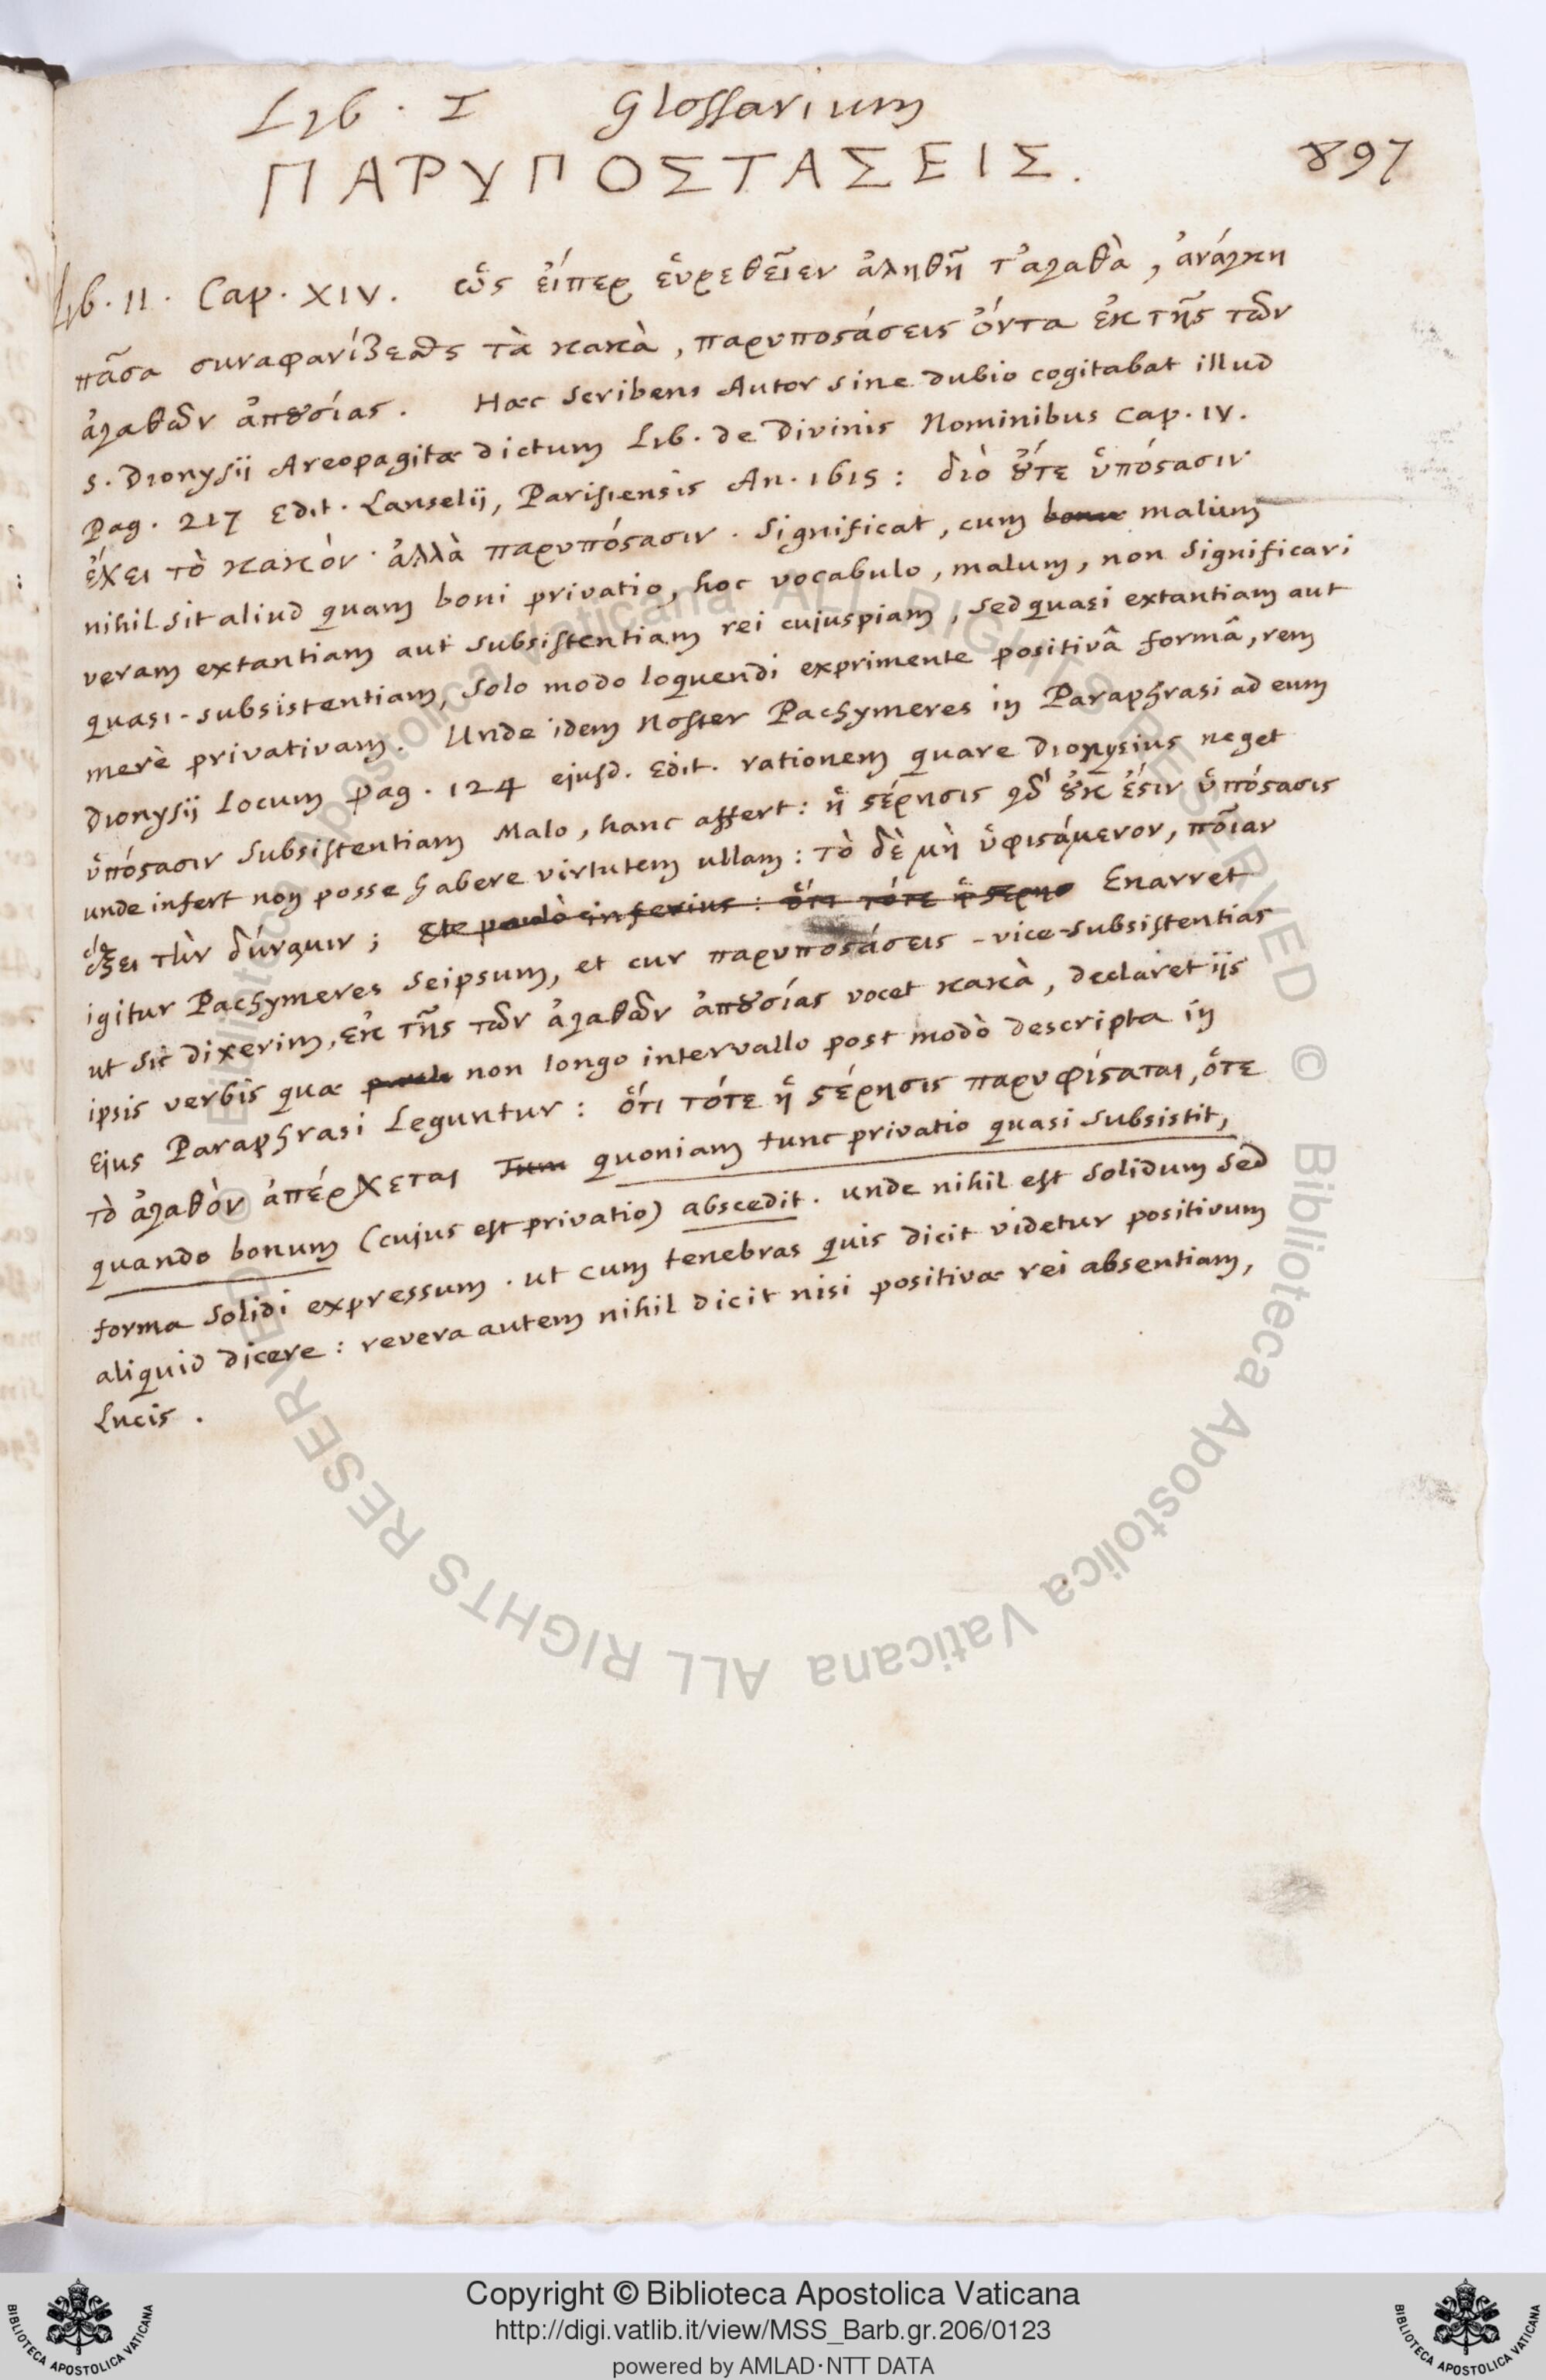 Lib. I Glossarium
ΠΑΡΥΠΟΣΤΑΣΕΙΣ. 897
Lib. II. Cap. XIV. ὡς εἴπερ εὑρεθεῖεν ἀληθῆ τ'ἀγαθὰ, ἀνάγκη
πᾶσα συναφανίζεσθαι τὰ κακὰ, παρυποϛάσεις ὄντα ἐκ τῆς τῶν
ἀγαθῶν ἀπȣσίας. Hæc scribens Autor sine dubio cogitabat illud
S. Dionysij Areopagitæ dictum Lib. de Divinis Nominibus Cap. IV.
Pag. 217 Edit. Lanselij, Parisiensis An. 1615: διὸ ȣ̓́τε ὑπόϛασιν
ἔχει τὸ κακὸν· ἀλλὰ παρυπόϛασιν. Significat, cum malum
nihil sit aliud quam boni privatio, hoc vocabulo, malum, non significari
veram extantiam aut subsistentiam rei cujuspiam, sed quasi extantiam aut
quasi-subsistentiam, solo modo loquendi exprimente positivâ formâ, rem
merè privativam. Unde idem Noster Pachymeres in Paraphrasi ad eum
Dionysij Locum Pag. 124 ejusd. Edit. rationem quare Dionysius neget
ὑπόϛασιν subsistentiam Malo, hanc affert: ἡ ϛέρησις ȣ̓κ ἔϛιν ὑπόϛασις
unde infert non posse habere virtutem ullam: τὸ δὲ μὴ ὑφιϛάμενον, ποῖαν
ἕξει τὴν δύναμιν; Et paulò inferius: ὅτι τότε ἡ Enarret
igitur Pachymeres seipsum, et cur παρυποϛάσεις - vice-subsistentias
ut sic dixerim, ἐκ τῆς τῶν ἀγαθῶν ἀπȣσίας vocet κακὰ, declaret ijs
ipsis verbis quæ non longo intervallo post modò descripta in
Ejus Paraphrasi Leguntur: ὅτι τότε ἡ ϛέρησις παρυφίϛαται, ὅτε
τὸ ἀγαθὸν ἀπέρχεται quoniam tunc privatio quasi subsistit,
quando bonum (cujus est privatio) abscedit. unde nihil est solidum sed
forma solidi expressum. ut cum tenebras quis dicit videtur positivum
aliquid dicere: revera autem nihil dicit nisi positivæ rei absentiam,
Lucis.
© Biblioteca Apostolica Vaticana ALL RIGHTS RESERVED
© Biblioteca Apostolica Vaticana ALL RIGHTS RESERVED
Copyright © Biblioteca Apostolica Vaticana
http://digi.vatlib.it/view/MSS_Barb.gr.206/0123
powered by AMLAD·NTT DATA
BIBLIOTECA APOSTOLICA VATICANA
BIBLIOTECA APOSTOLICA VATICANA